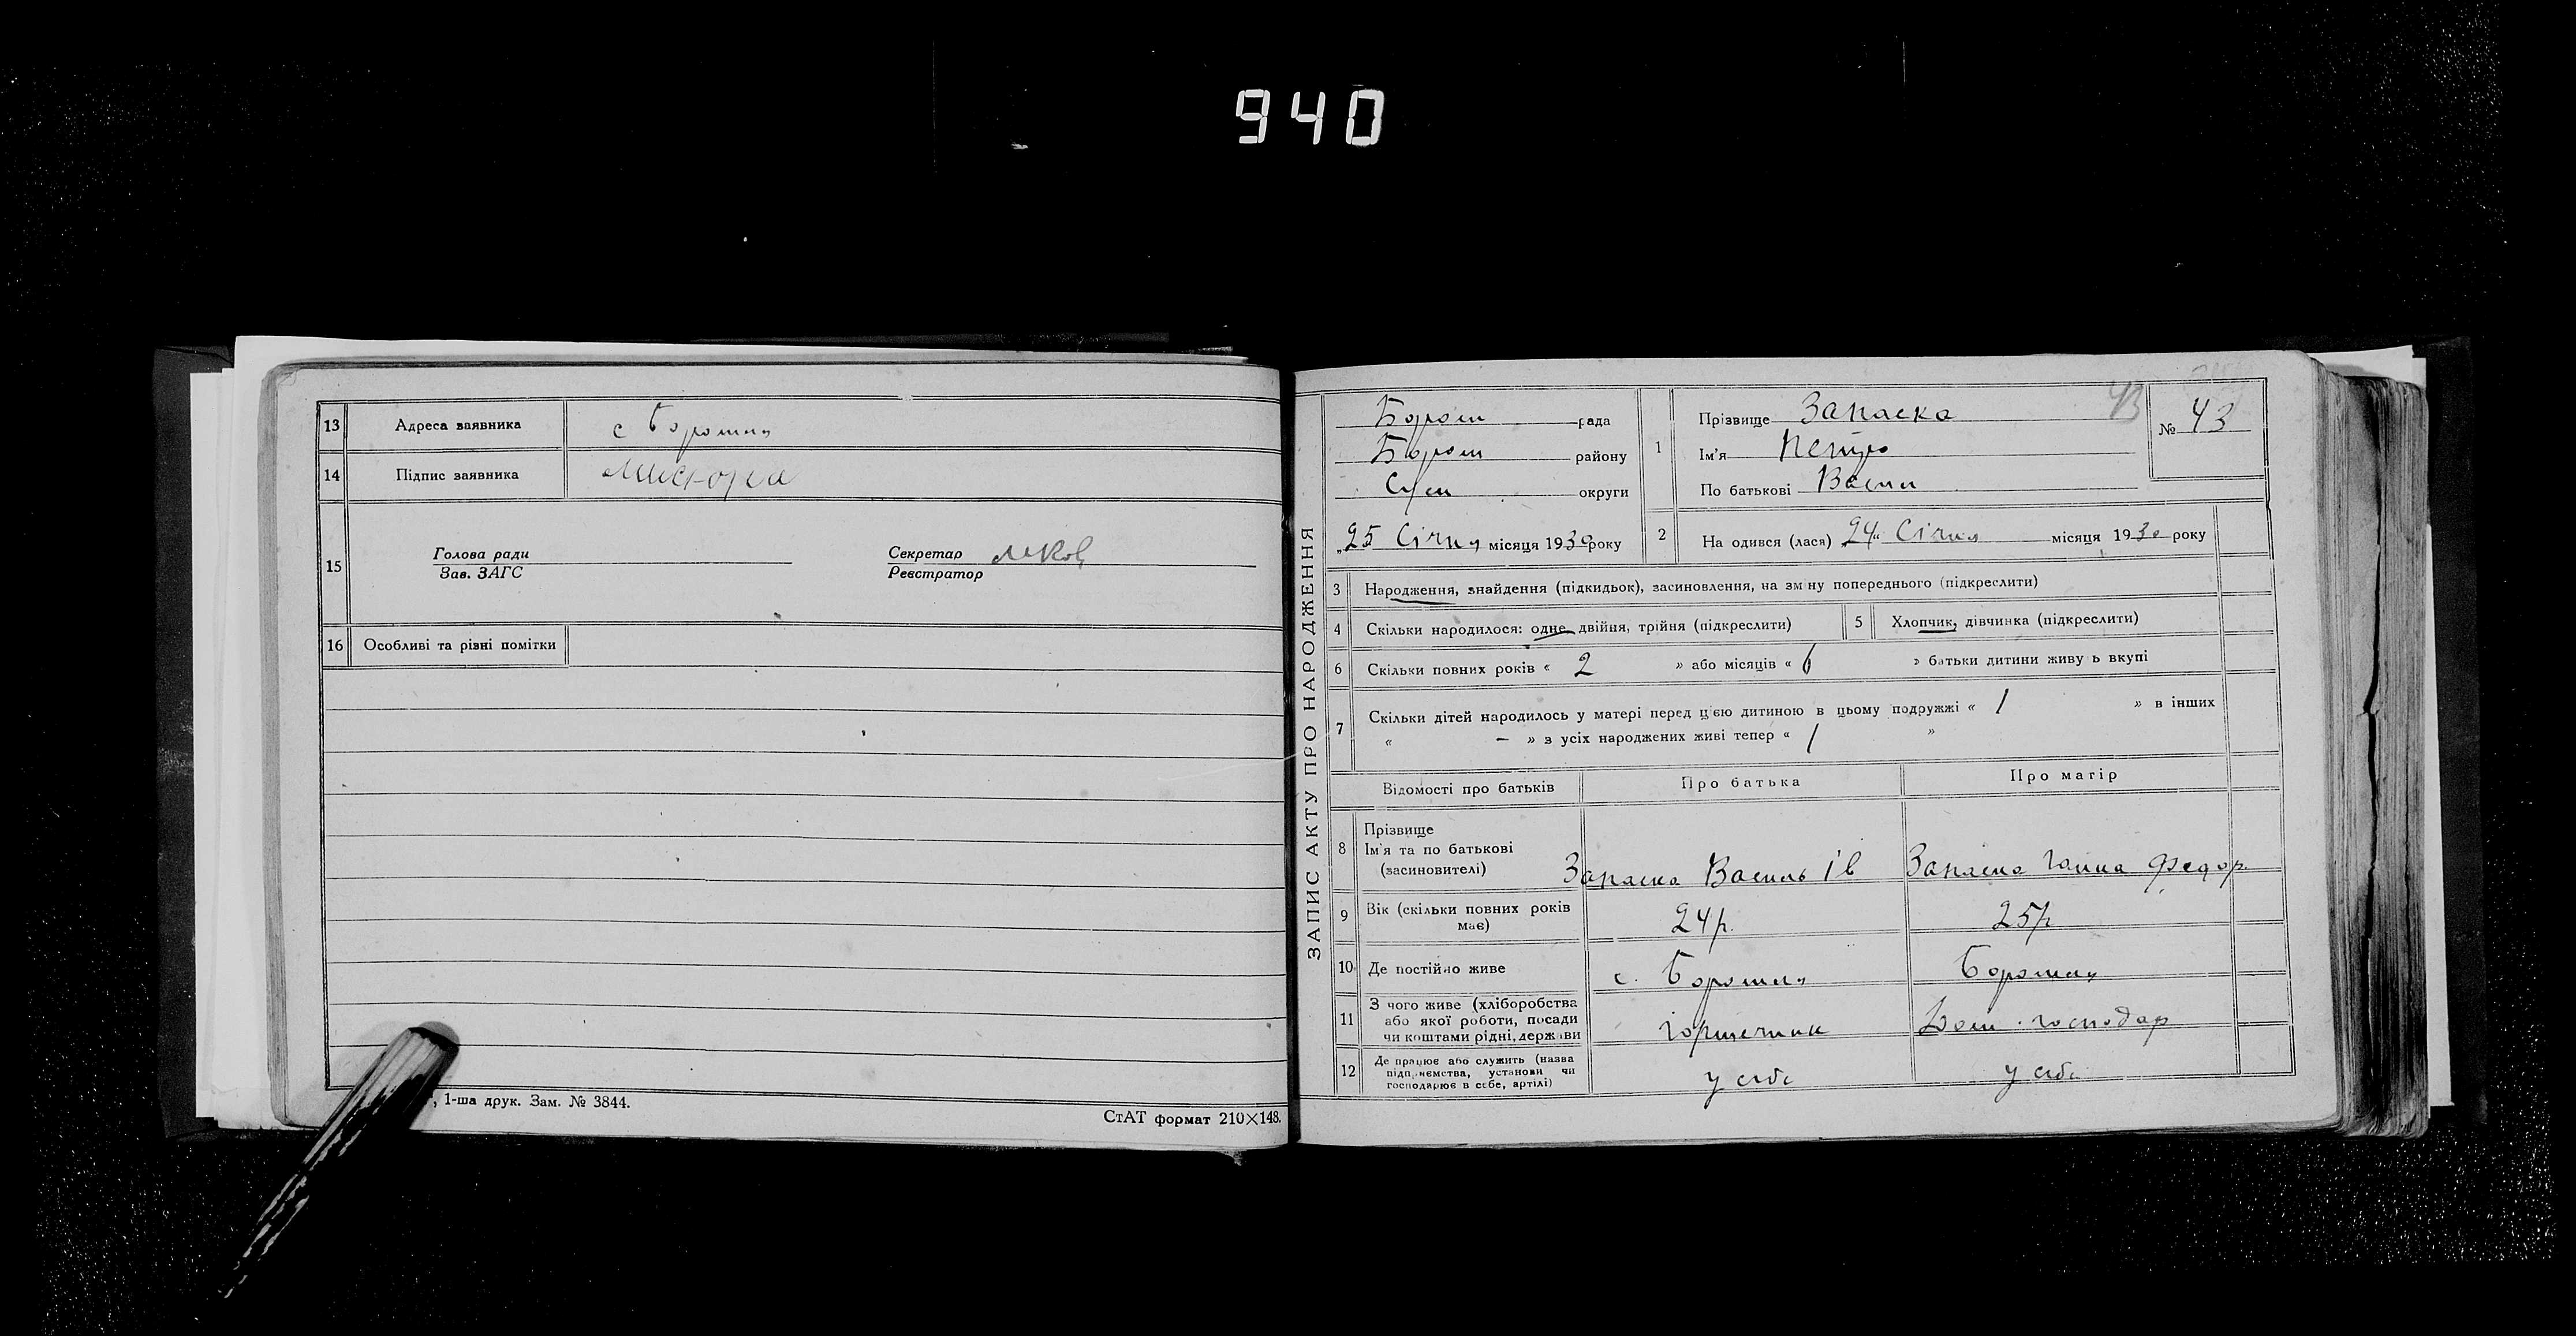 940
13 Адреса заявника с Боромля
14 Підпис заявника
15 Голова ради Секретар
Зав. ЗАГС Реєстратор
16 Особливі та різні помітки
, 1-ша друк. Зам. № 3844.
СтАТ формат 210×148.
ЗАПИС АКТУ ПРО НАРОДЖЕННЯ
Бором рада
Бором району
Сум округи
„25 Січня місяця 1930 року
43
1 Прізвище Запаска
Ім'я Петро
По батькові Васил
№ 43
2 На одився (лася) „24“ Січня місяця 1930 року
3 Народження, знайдення (підкидьок), засиновлення, на зм ну попереднього (підкреслити)
4 Скільки народилося: одне, двійня, трійня (підкреслити)
5 Хлопчик, дівчинка (підкреслити)
6 Скільки повних років « 2 » або місяців « 6 » батьки дитини живу ь вкупі
7 Скільки дітей народилось у матері перед цією дитиною в цьому подружжі « 1 » в інших
« — » з усіх народжених живі тепер « 1 »
Відомості про батьків Про батька Про матір
8 Прізвище
Ім'я та по батькові
(засиновителі) Запаска Василь Ів Запаска Ганна Федор
9 Вік (скільки повних років
має) 24р. 25р
10 Де постійно живе с. Боромля Боромля
11 З чого живе (хліборобства
або якої роботи, посади
чи коштами рідні, держави Горщечник Дом. господар
12 Де працює або служить (назва
підприємства, установи чи
господарює в себе, артілі) у себе у себе